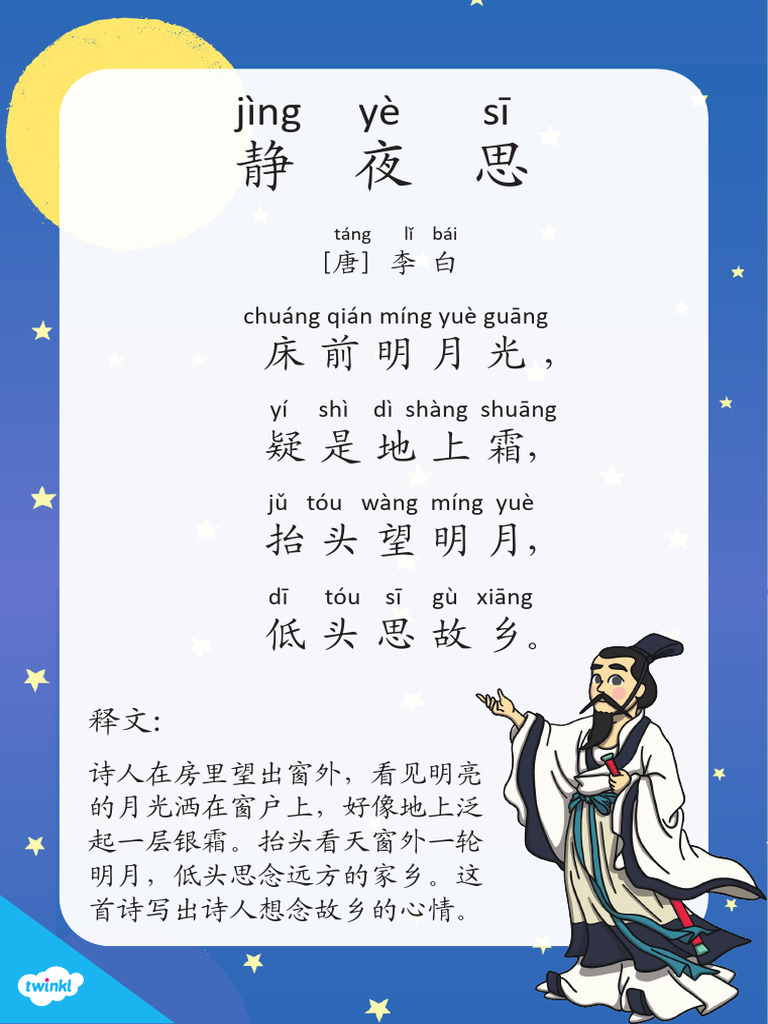 jìng yè sī
静 夜 思
táng lǐ bái
[唐] 李 白
chuáng qián míng yuè guāng
床 前 明 月 光 ，
yí shì dì shàng shuāng
疑 是 地 上 霜，
jǔ tóu wàng míng yuè
抬 头 望 明 月，
dī tóu sī gù xiāng
低 头 思 故 乡。
释文：
诗人在房里望出窗外，看见明亮
的月光洒在窗户上，好像地上泛
起一层银霜。抬头看天窗外一轮
明月，低头思念远方的家乡。这
首诗写出诗人想念故乡的心情。
twinkl